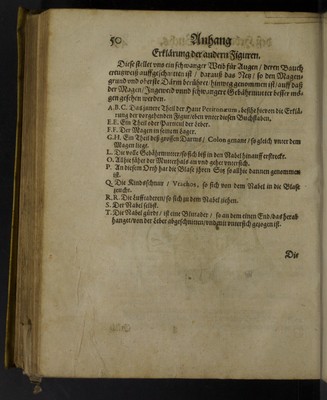 50 Anhang
Erklärung der andern Figuren.
Diese stellet vns ein schwanger Weib für Augen / deren Bauch
creutzweiß auffgeschnitten ist / darauß das Netz / so den Magen-
grund vnd oberste Därm berühret hinweg genommen ist / auff daß
der Magen / Ingeweid vnnd schwangere Gebährmutter besser mö-
gen gesehen werden.
A.B.C. Das junere Theil der Haut Peritonæum, besihe hievon die Erklä-
rung der vorgehenden Figur / eben vnter diesen Buchstaben,
E.E. Ein Theil oder Portend der Leber.
F.F. Der Magen in seinem Lager.
G.H. Ein Theil deß grossen Darms / Colon genant / so gleich vnter dem
Magen liegt.
L. Die volle Gebährmutter so sich biß in den Nabel hinauff erstreckt.
O. Allhie fähet der Mutterhals an vnd gehet vntersich.
P. An diesem Orth hat die Blase ihren Sitz so allhie dannen genommen
ist.
Q. Die Kindsschnur / Vrachos, so sich von dem Nabel in die Blase
zeucht.
R.R. Die Lufftadern / so sich zu dem Nabel ziehen.
S. Der Nabel selbst.
T. Die Nabel gürdt / ist eine Blutader / so an dem einen End / das herab
hanget / von der Leber abgeschnitten / vnd mit vntersich gezogen ist.
Die